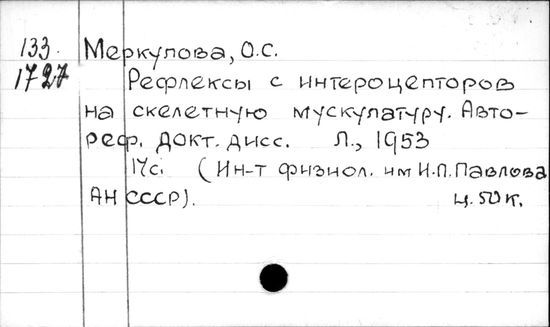 133. Меркулова, О.С.
1727 Рефлексы с интероцепторов
на скелетную мускулатуру. Авто-
реф. докт. дисс. Л., 1953
17с. (Ин-т физиол. им И.П. Павлова
АН СССР). ц. 50 к.